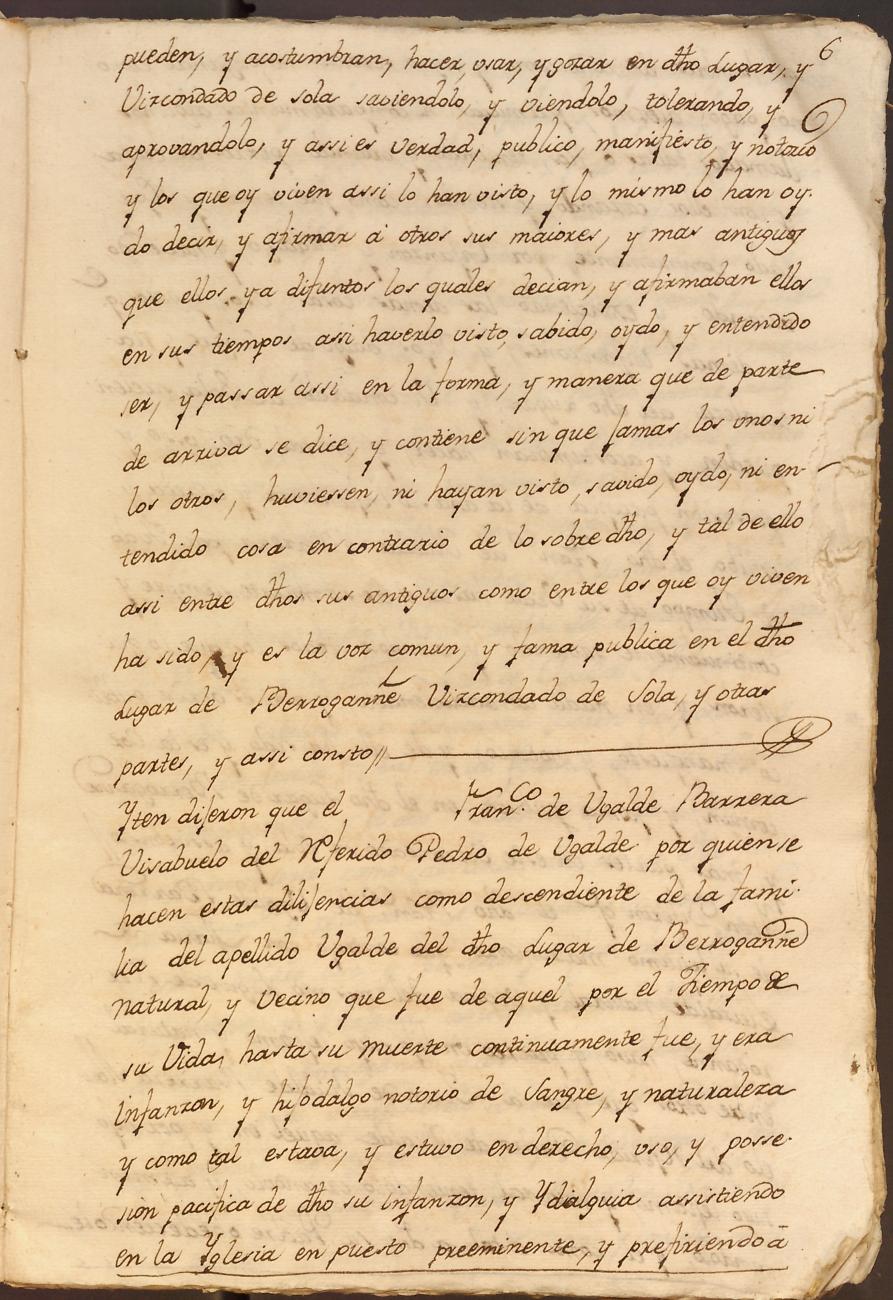 6
pueden, y acostumbran, hacer, usar, y gozar en dho Lugar, y
Vizcondado de sola saviendolo, y viendolo, tolerando, y
aprovandolo, y assi es verdad, publico, manifiesto, y notorio
y los que oy viven assi lo han visto, y lo mismo lo han oy-
do decir, y afirmar à otros sus maiores, y mas antiguos
que ellos ya difuntos los quales decian, y afirmaban ellos
en sus tiempos assi haverlo visto, sabido, oydo, y entendido
ser, y passar assi en la forma, y manera que de parte
de arriva se dice, y contiene sin que jamas los unos ni
los otros, huviessen, ni hayan visto, savido, oydo, ni en-
tendido cosa en contrario de lo sobre dho, y tal de ello
assi entre dhos sus antiguos como entre los que oy viven
ha sido, y es la voz comun, y fama publica en el dho
Lugar de Berrogañne Vizcondado de Sola, y otras
partes, y assi consto //
Yten dijeron que el Franco. de Ugalde Barrera
Visabuelo del Referido Pedro de Ugalde por quien se
hacen estas dilijencias como descendiente de la fami-
lia del apellido Ugalde del dho Lugar de Berrogañne
natural, y Vecino que fue de aquel por el Tiempo de
su Vida, hasta su muerte continuamente fue, y era
infanzon, y hijodalgo notorio de Sangre, y naturaleza
y como tal estava, y estuvo en derecho, uso, y posse-
sion pacifica de dho su infanzon, y Ydalguia assistiendo
en la Yglesia en puesto preeminente, y prefiriendo à